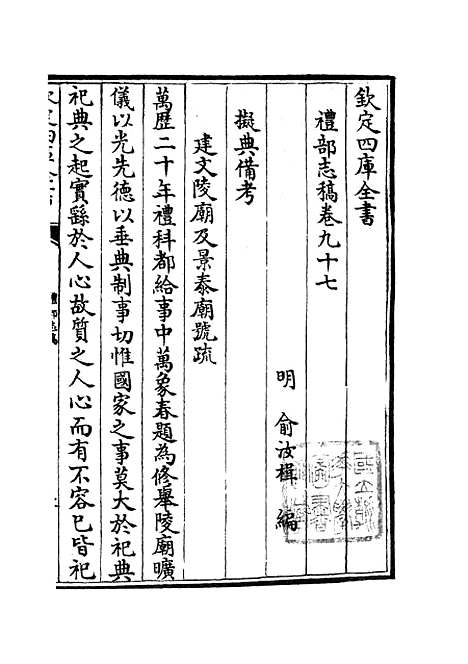 欽定四庫全書
禮部志稿卷九十七
明 俞汝楫 編
擬典備考
建文陵廟及景泰廟號疏
萬歷二十年禮科都給事中萬象春題為修舉陵廟曠
儀以光先德以垂典制事切惟國家之事莫大於祀典
祀典之起實繇於人心故質之人心而有不容已皆祀